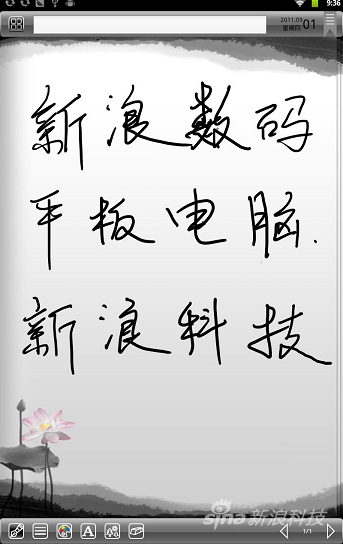 9:36
2011.09
星期四 01
新浪数码
平板电脑.
新浪科技
sina 新浪科技
A
1/1